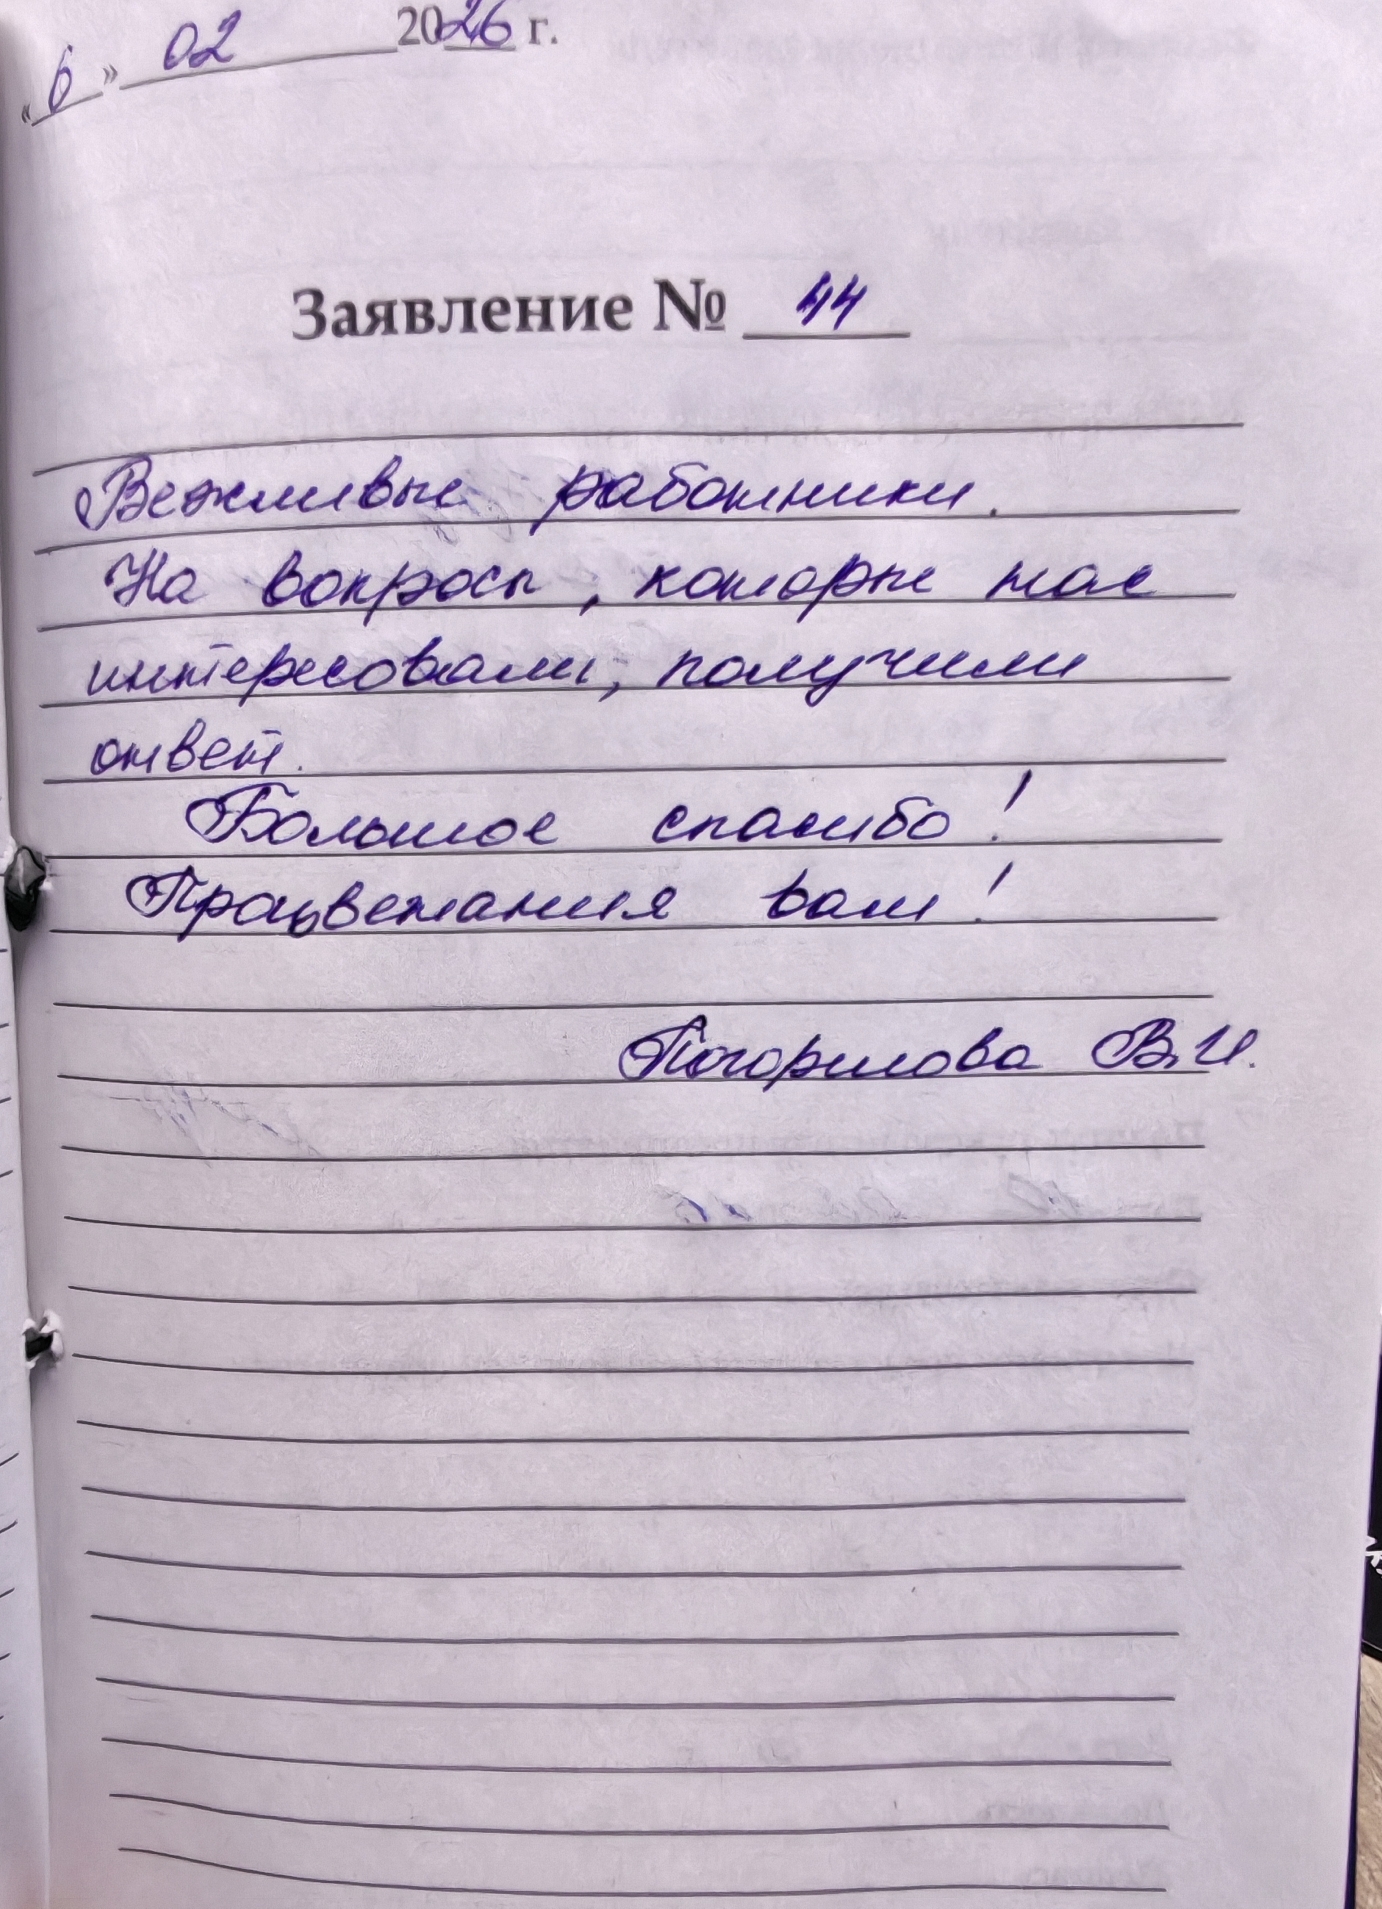 «6» 02 2026 г.
Заявление № 44
Вежливые работники.
На вопросы, которые нас
интересовали, получили
ответ.
Большое спасибо!
Процветания вам!
Погорилова В.И.